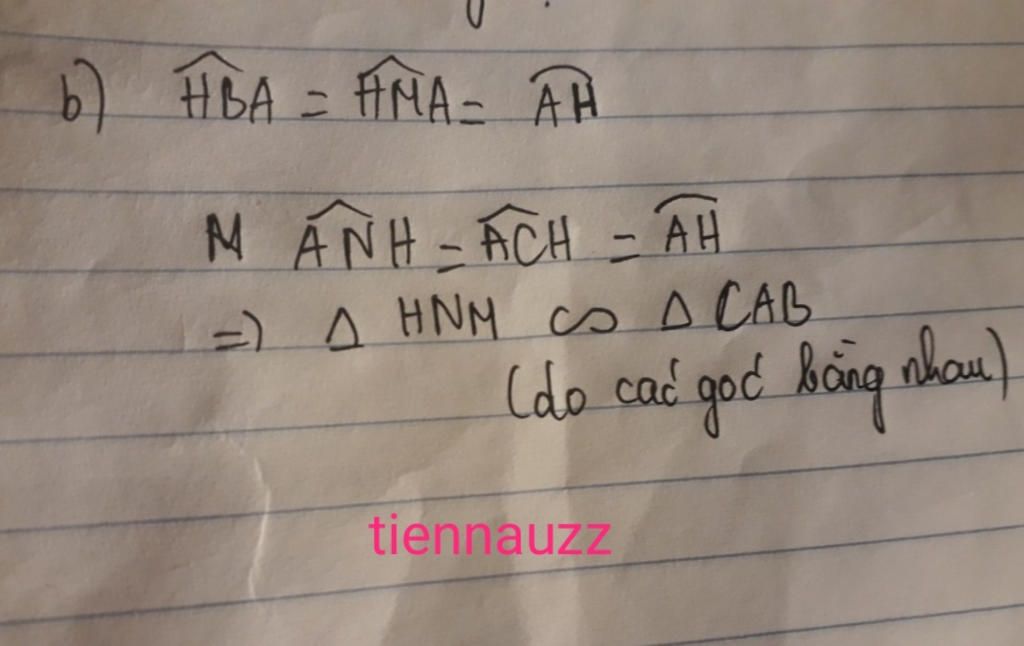 b) $\widehat{HBA} = \widehat{HMA} = \overset{\frown}{AH}$
M $\widehat{ANH} = \widehat{ACH} = \overset{\frown}{AH}$
=) Δ HNM ∽ Δ CAB
(do các góc bằng nhau)
tiennauzz